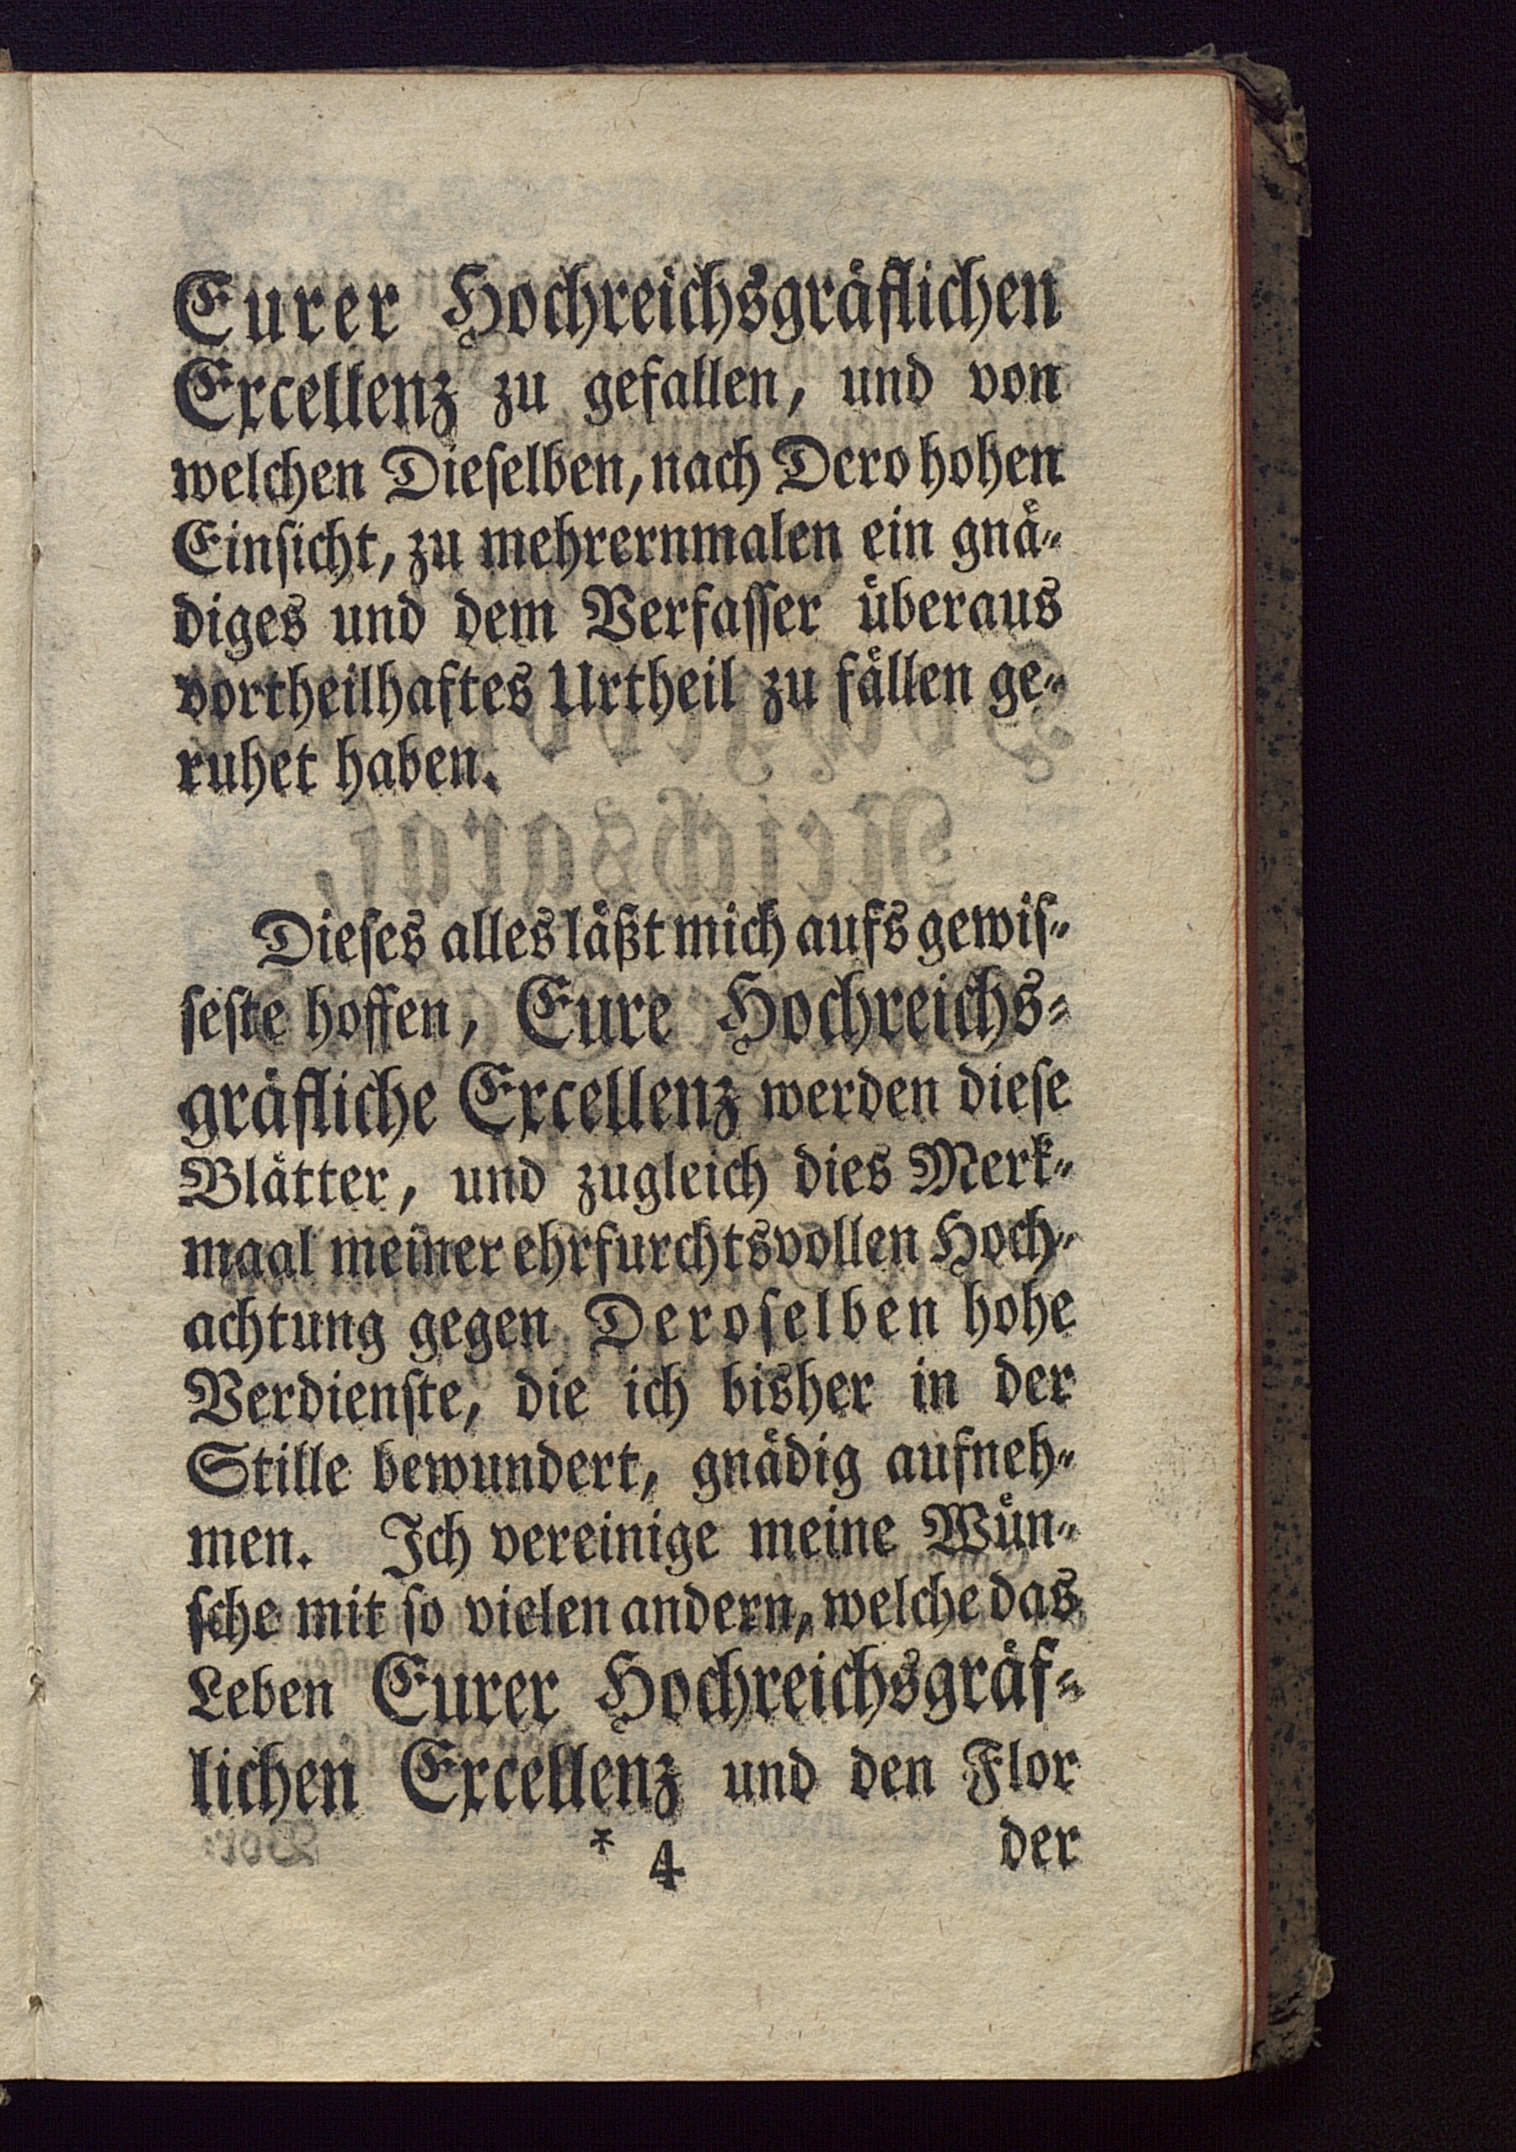 Eurer Hochreichsgräflichen
Excellenz zu gefallen, und von
welchen Dieselben, nach Dero hohen
Einsicht, zu mehrernmalen ein gnä-
diges und dem Verfasser überaus
vortheilhaftes Urtheil zu fällen ge-
ruhet haben.
Dieses alles läßt mich aufs gewis-
seste hoffen, Eure Hochreichs-
gräfliche Excellenz werden diese
Blätter, und zugleich dies Merk-
maal meiner ehrfurchtsvollen Hoch-
achtung gegen Deroselben hohe
Verdienste, die ich bisher in der
Stille bewundert, gnädig aufneh-
men. Ich vereinige meine Wün-
sche mit so vielen andern, welche das
Leben Eurer Hochreichsgräf-
lichen Excellenz und den Flor
* 4 der